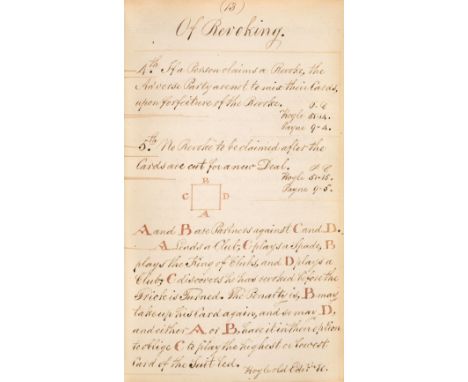 (13)
Of Revoking.
4th. If a Person claims a Revoke, the
Adverse Party are not to mix their Cards,
upon forfeiture of the Revoke.
Hoyle 51-14.
Payne 9-4.
5th No Revoke to be claimed after the
Cards are cut for a new Deal.
Hoyle 51-15.
Payne 9-5.
B
C D
A
A and B are Partners against C and D.
A Leads a Club, C plays a Spade, B
plays the King of Clubs, and D plays a
Club, C discovers he has revoked before the
Trick is Turned. The Penalty is, B may
take up his Card again, and so may D,
and either A or B, have it in their option
to oblige C to play the highest or lowest
Card of the Suit led.
Hoyle old Edit.